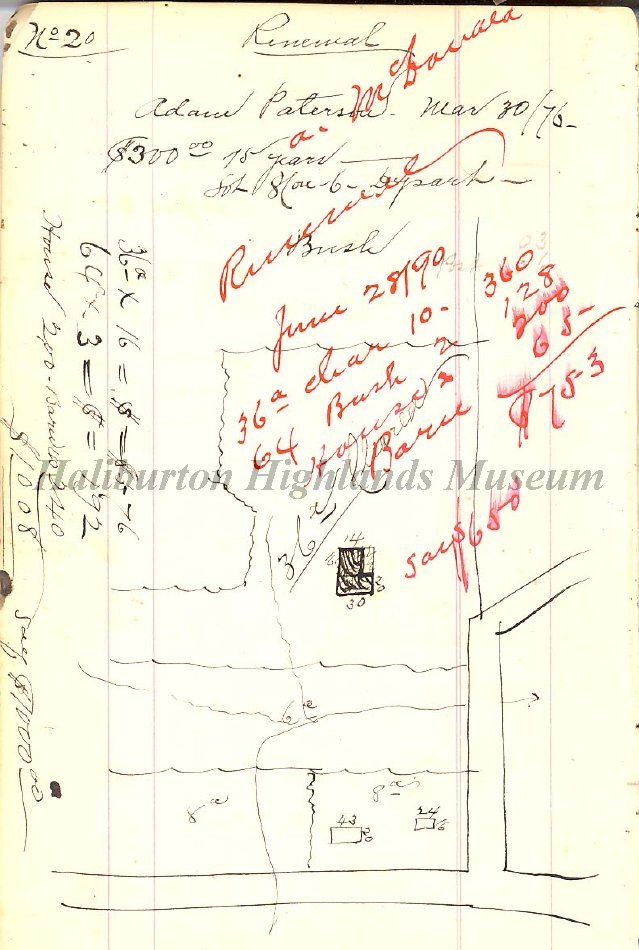 No 20
Renewal
Adam Paterson - Mar 30/76 -
a. McDonald
$300 00 15 years
Lot 8 Con 6 -
Renewal
Bush
June 28/90
36a clear 10 - 360
64 Bush 2 128
House & 200
Barn 65 -
$753
say $650
36a
14
30
6a
8a
8a
43
30
24
16
36a x 16 = 576
64 x 3 = 192
House 200 - Barn 40
$1008 say $1000 00
Haliburton Highlands Museum